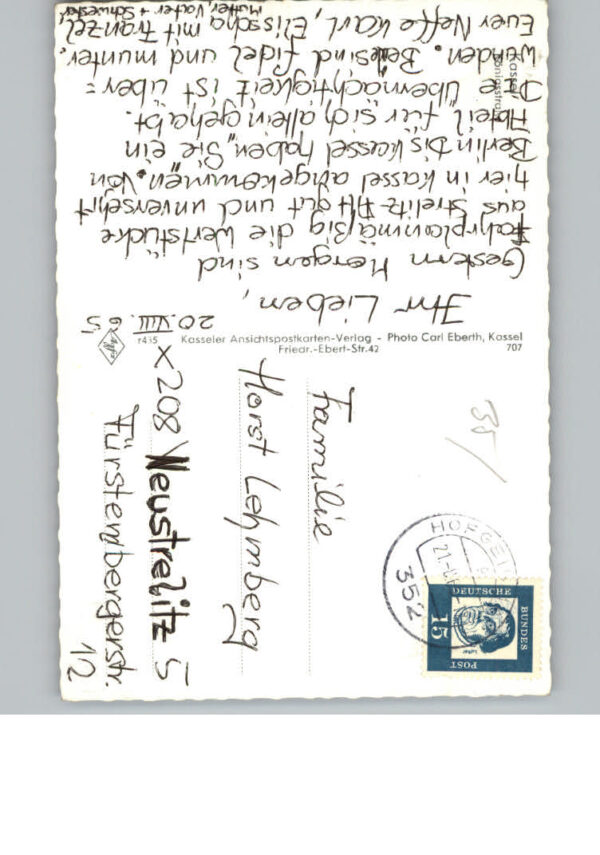 20.VIII.65
Ihr Lieben,
Gestern Morgen sind
fahrplanmäßig die Wertstücke
aus Strelitz Alt gut und unversehrt
hier in Kassel angekommen. Von
Berlin bis Kassel haben Sie ein
Abteil "für sich allein gehabt.
Die Übernächtigkeit ist über=
wunden. Beide sind fidel und munter.
Euer Neffe Karl, Elischa mit Franzel
Mutter, Vater + Schwester
r435
Kasseler Ansichtspostkarten-Verlag - Photo Carl Eberth, Kassel
Friedr.-Ebert-Str.42
707
Kassel
Königsstraße
Familie
Horst Lehmberg
X 208 Neustrelitz 5
Fürstenbergerstr.
12
35/
HOFGEI
21.
352
DEUTSCHE
BUNDES
POST
15
Luther
Agfa